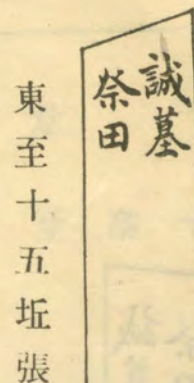 誠墓
祭田
東至十五坵張